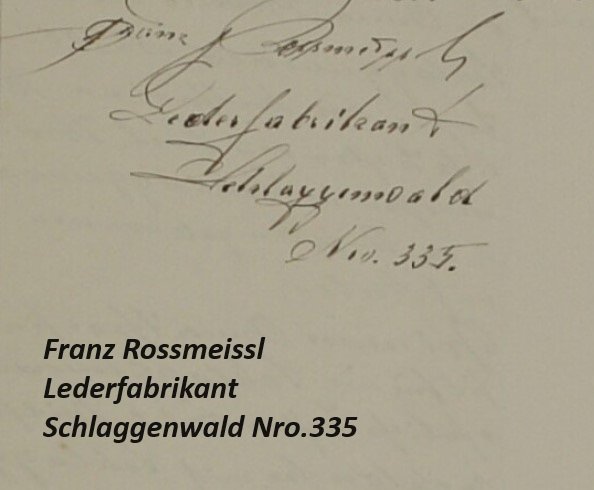 Franz Rossmeissl
Lederfabrikant
Schlaggenwald
Nro. 335.
Franz Rossmeissl
Lederfabrikant
Schlaggenwald Nro.335